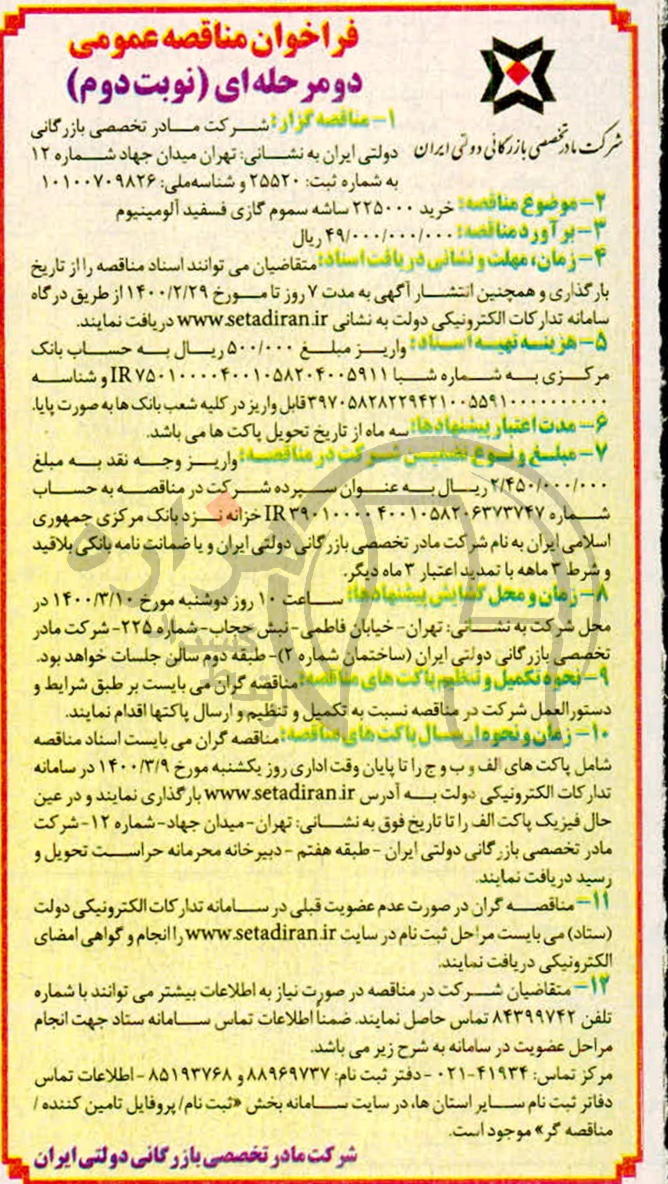 فراخوان مناقصه عمومی
دو مرحله ای (نوبت دوم)
شرکت مادر تخصصی بازرگانی دولتی ایران
۱- مناقصه گزار: شرکت مادر تخصصی بازرگانی
دولتی ایران به نشانی: تهران میدان جهاد شماره ۱۲
به شماره ثبت: ۲۵۵۲۰ و شناسه ملی: ۱۰۱۰۰۷۰۹۸۲۶
۲- موضوع مناقصه: خرید ۲۲۵۰۰۰ ساشه سموم گازی فسفید آلومینیوم
۳- برآورد مناقصه: ۴۹/۰۰۰/۰۰۰/۰۰۰ ریال
۴- زمان، مهلت و نشانی دریافت اسناد: متقاضیان می توانند اسناد مناقصه را از تاریخ
بارگذاری و همچنین انتشار آگهی به مدت ۷ روز تا مورخ ۱۴۰۰/۲/۲۹ از طریق درگاه
سامانه تدارکات الکترونیکی دولت به نشانی www.setadiran.ir دریافت نمایند.
۵- هزینه تهیه اسناد: واریز مبلغ ۵۰۰/۰۰۰ ریال به حساب بانک
مرکزی به شماره شبا IR ۷۵۰۱۰۰۰۰۴۰۰۱۰۵۸۲۰۴۰۰۵۹۱۱ و شناسه
۳۹۷۰۵۸۲۸۲۲۹۴۲۱۰۰۵۵۹۱۰۰۰۰۰۰۰۰۰۰ قابل واریز در کلیه شعب بانک ها به صورت پایا.
۶- مدت اعتبار پیشنهادها: سه ماه از تاریخ تحویل پاکت ها می باشد.
۷- مبلغ و نوع تضمین شرکت در مناقصه: واریز وجه نقد به مبلغ
۲/۴۵۰/۰۰۰/۰۰۰ ریال به عنوان سپرده شرکت در مناقصه به حساب
شماره IR ۳۹۰۱۰۰۰۰ ۴۰۰۱۰۵۸۲۰۶۳۷۳۷۴۷ خزانه نزد بانک مرکزی جمهوری
اسلامی ایران به نام شرکت مادر تخصصی بازرگانی دولتی ایران و یا ضمانت نامه بانکی بلاقید
و شرط ۳ ماهه با تمدید اعتبار ۳ ماه دیگر.
۸- زمان و محل گشایش پیشنهادها: ساعت ۱۰ روز دوشنبه مورخ ۱۴۰۰/۳/۱۰ در
محل شرکت به نشانی: تهران- خیابان فاطمی- نبش حجاب- شماره ۲۲۵- شرکت مادر
تخصصی بازرگانی دولتی ایران (ساختمان شماره ۲)- طبقه دوم سالن جلسات خواهد بود.
۹- نحوه تکمیل و تنظیم پاکت های مناقصه: مناقصه گران می بایست بر طبق شرایط و
دستورالعمل شرکت در مناقصه نسبت به تکمیل و تنظیم و ارسال پاکتها اقدام نمایند.
۱۰- زمان و نحوه ارسال پاکت های مناقصه: مناقصه گران می بایست اسناد مناقصه
شامل پاکت های الف و ب و ج را تا پایان وقت اداری روز یکشنبه مورخ ۱۴۰۰/۳/۹ در سامانه
تدارکات الکترونیکی دولت به آدرس www.setadiran.ir بارگذاری نمایند و در عین
حال فیزیک پاکت الف را تا تاریخ فوق به نشانی: تهران- میدان جهاد- شماره ۱۲- شرکت
مادر تخصصی بازرگانی دولتی ایران - طبقه هفتم - دبیرخانه محرمانه حراست تحویل و
رسید دریافت نمایند.
۱۱- مناقصه گران در صورت عدم عضویت قبلی در سامانه تدارکات الکترونیکی دولت
(ستاد) می بایست مراحل ثبت نام در سایت www.setadiran.ir را انجام و گواهی امضای
الکترونیکی دریافت نمایند.
۱۲- متقاضیان شرکت در مناقصه در صورت نیاز به اطلاعات بیشتر می توانند با شماره
تلفن ۸۴۳۹۹۷۴۲ تماس حاصل نمایند. ضمناً اطلاعات تماس سامانه ستاد جهت انجام
مراحل عضویت در سامانه به شرح زیر می باشد.
مرکز تماس: ۴۱۹۳۴-۰۲۱ - دفتر ثبت نام: ۸۸۹۶۹۷۳۷ و ۸۵۱۹۳۷۶۸ - اطلاعات تماس
دفاتر ثبت نام سایر استان ها، در سایت سامانه بخش «ثبت نام/ پروفایل تامین کننده /
مناقصه گر» موجود است.
شرکت مادر تخصصی بازرگانی دولتی ایران